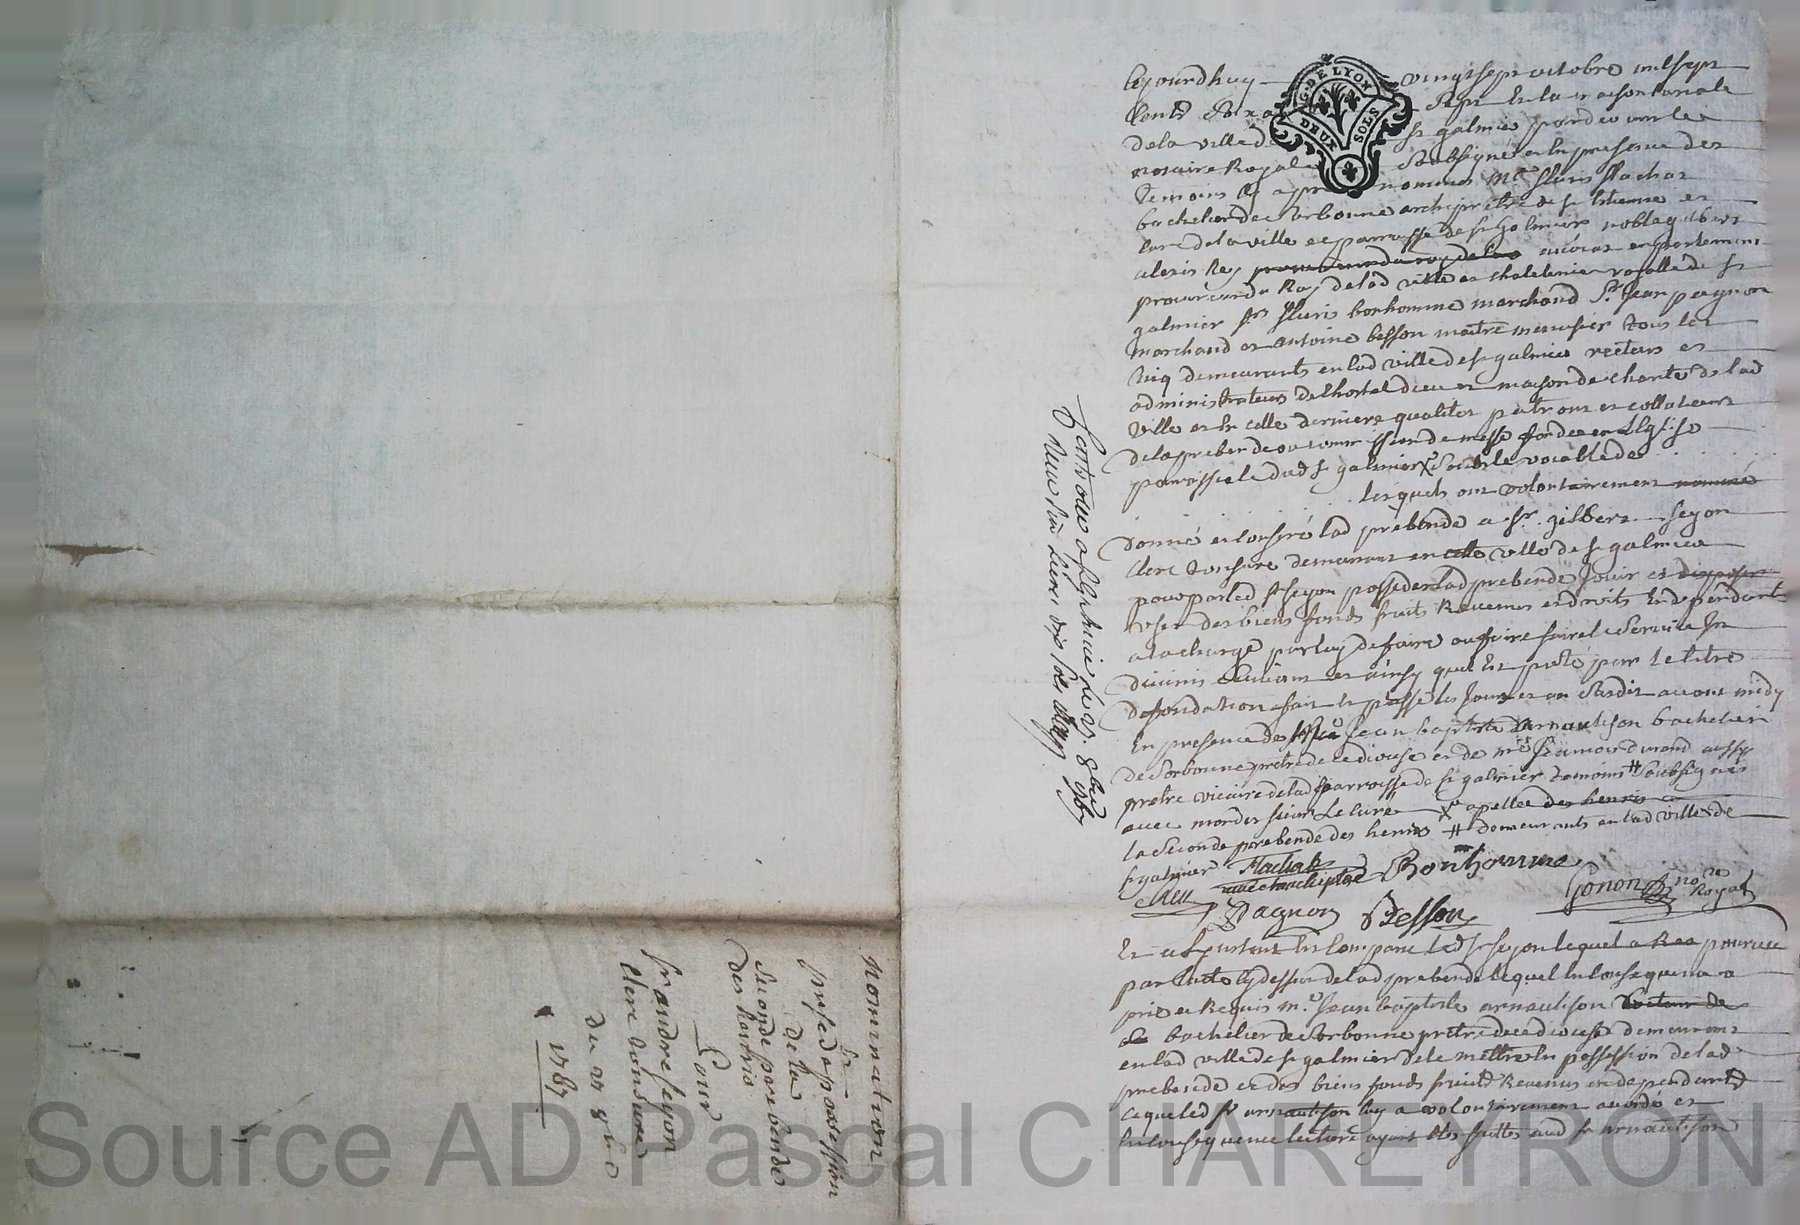 G. DE LYON
DEUX SOLS
Cejourdhuy vingt sept octobre mil sept
Cents Soixa Sept En la maison curiale
de la ville de st galmier pardevant le
notaire Royal Soubsigné en la presence des
temoins cy apres nommes Mre fleuris flachat
bachelier de Sorbonne archipretre de st Etienne et
curé de la ville et parroisse de st Galmier noble
alexis Rey procureur du roy de la avocat en parlement
procureur du Roy de lad ville et chatelenie royalle de st
galmier sr fleuris bonhomme marchand Sr Jean pagnon
marchand et antoine besson maitre menusier tous les
cinq demeurants en lad ville de st galmier recteurs et
administrateurs de lhostel dieu et maison de charité de lad
ville et En cette derniere qualité patrons et collateurs
de la prebende ou commission de messe fondée en Leglise
parroissielle dud st galmier x Soubs le vocable de
Lesquels ont volontairement nommé
donné et conferé lad prebende a sr gilbert Seyon
clerc tonsuré demeurant en cette ville de st galmier
pour par led sr Seyon posseder lad prebende Jouir et disposer
user des biens fonds fruits Revenus et droits En dependants
a la charge par luy de faire ou faire faire le Service In
divinis suivant et ainsy quil Est porté par le titre
de fondation fait et passé les Jour et an Susdit avant midy
En presence de Mre Jean baptiste arnaulison bachelier
de Sorbonne pretre de ce diocese et de mre durand aussy
pretre vicaire de lad parroisse de st galmier temoins # Soubsignés
avec mondit sieur Le curé x apellée des henris
la Seconde prebende des henris # demeurants en lad ville de
st galmier
Flachat
curé et archipretre
Bonhomme
Gonon no re Royal
Rey
Pagnon Besson
Et a l'instant Est comparu led sr Seyon lequel a pourvu
par lacte cy dessus de lad prebende lequel En consequence a
prié et Requis mre Jean baptiste arnaulison docteur de
bachelier de Sorbonne pretre de ce diocese demeurant
en lad ville de st galmier de le mettre En possession de lad
prebende et des biens fonds fruits Revenus en dependants
ce que led sr arnaulison luy a volontairement accordé et
En consequence lecture ayant Eté faitte aud sr arnaulison
Controllé a st galmier le 27 8bre 1767
Reçu
nomination
et
prise de possession
de la
Seconde prebende
des henris
Pour
sr andre Seyon
clerc tonsuré
du 27 8bre
1767
Source AD Pascal CHAREYRON